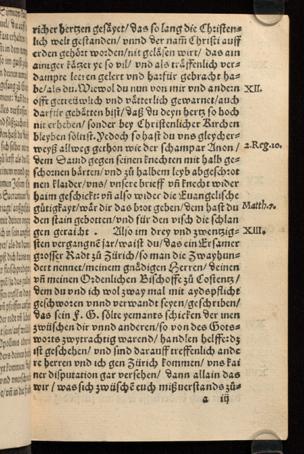 richer hertzen gesäyet/ das so lang die Christen-
lich welt gestanden/ vnnd der nam̃ Christi auff
erden gehört worden/ nit geläsen wirt/ das ain
ainiger kätzer ye so vil/ vnd als träffenlich ver-
dampte leeren gelert vnd harfür gebracht ha-
be/ als du. Wiewol du nun von mir vnd andern
offt getreüwlich vnd vätterlich gewarnet/ auch
darfür gebätten bist/ daß du deyn hertz so hoch
nit erheben/ sonder bey Christenlicher Kirchen
bleyben söltist. Yedoch so hast du vns gleycher-
weyß allweg gethon wie der schampar Anon/
dem Dauid gegen seinen knechten mit halb ge-
schornen bärten/ vnd zů halbem leyb abgeschrot
nen klaider/ vns/ vnsere brieff vñ knecht wider
haim geschickt: vñ also wider die Euangelische
gütigkayt/ wär dir das brot geben/ dem hast du
den stain gebotten/ vnd für den visch die schlan
gen geraicht . Also im drey vnd zwentzig-
sten vergangne jar/ waist du/ das ein Ersamer
grosser Radt zů Zürich/ so man die Zwayhun-
dert nennet/ meinem gnädigen Herren/ deinen
vñ meinen Ordenlichen Bischoffe zů Costentz/
dem du vnd ich wol zway mal mit aydspflicht
geschworen vnnd verwandt seyen/ geschriben/
das sein F. G. sölte yemants schicken der inen
zwüschen dir vnnd anderen/ so von des Gots-
worts zwytrachtig warend/ handlen helff: dz
ist geschehen/ vnd sind darauff treffenlich ande
re herren vnd ich gen Zürich kommen/ vns kai
ner disputation gar versehen/ dann allain das
wir/ was sich zwüschẽ euch mißuerstands zů-
a iij
XII.
2.Reg.10.
Matth.7.
XIII.